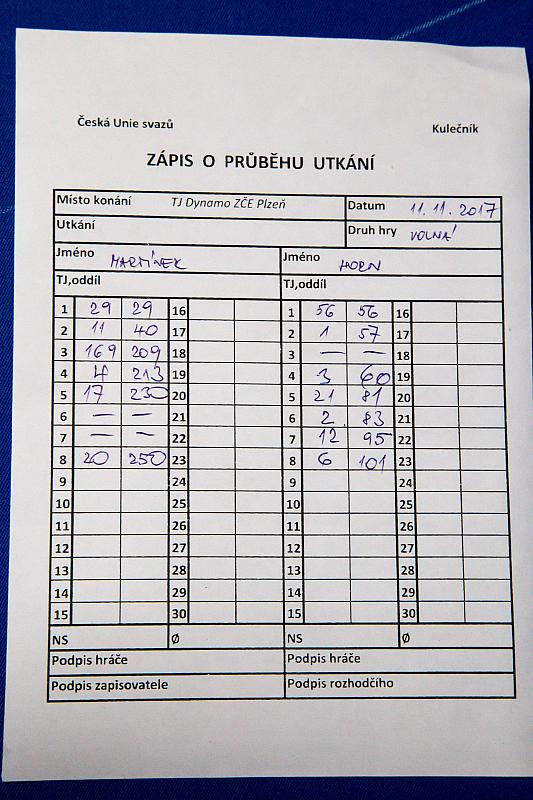 Česká Unie svazů Kulečník
ZÁPIS O PRŮBĚHU UTKÁNÍ
Místo konání TJ Dynamo ZČE Plzeň Datum 11.11.2017
Utkání Druh hry VOLNÁ
Jméno MARTÍNEK Jméno HORN
TJ,oddíl TJ,oddíl
1 29 29 16 1 56 56 16
2 11 40 17 2 1 57 17
3 169 209 18 3 — — 18
4 4 213 19 4 3 60 19
5 17 230 20 5 21 81 20
6 — — 21 6 2 83 21
7 — — 22 7 12 95 22
8 20 250 23 8 6 101 23
9 24 9 24
10 25 10 25
11 26 11 26
12 27 12 27
13 28 13 28
14 29 14 29
15 30 15 30
NS Ø NS Ø
Podpis hráče Podpis hráče
Podpis zapisovatele Podpis rozhodčího